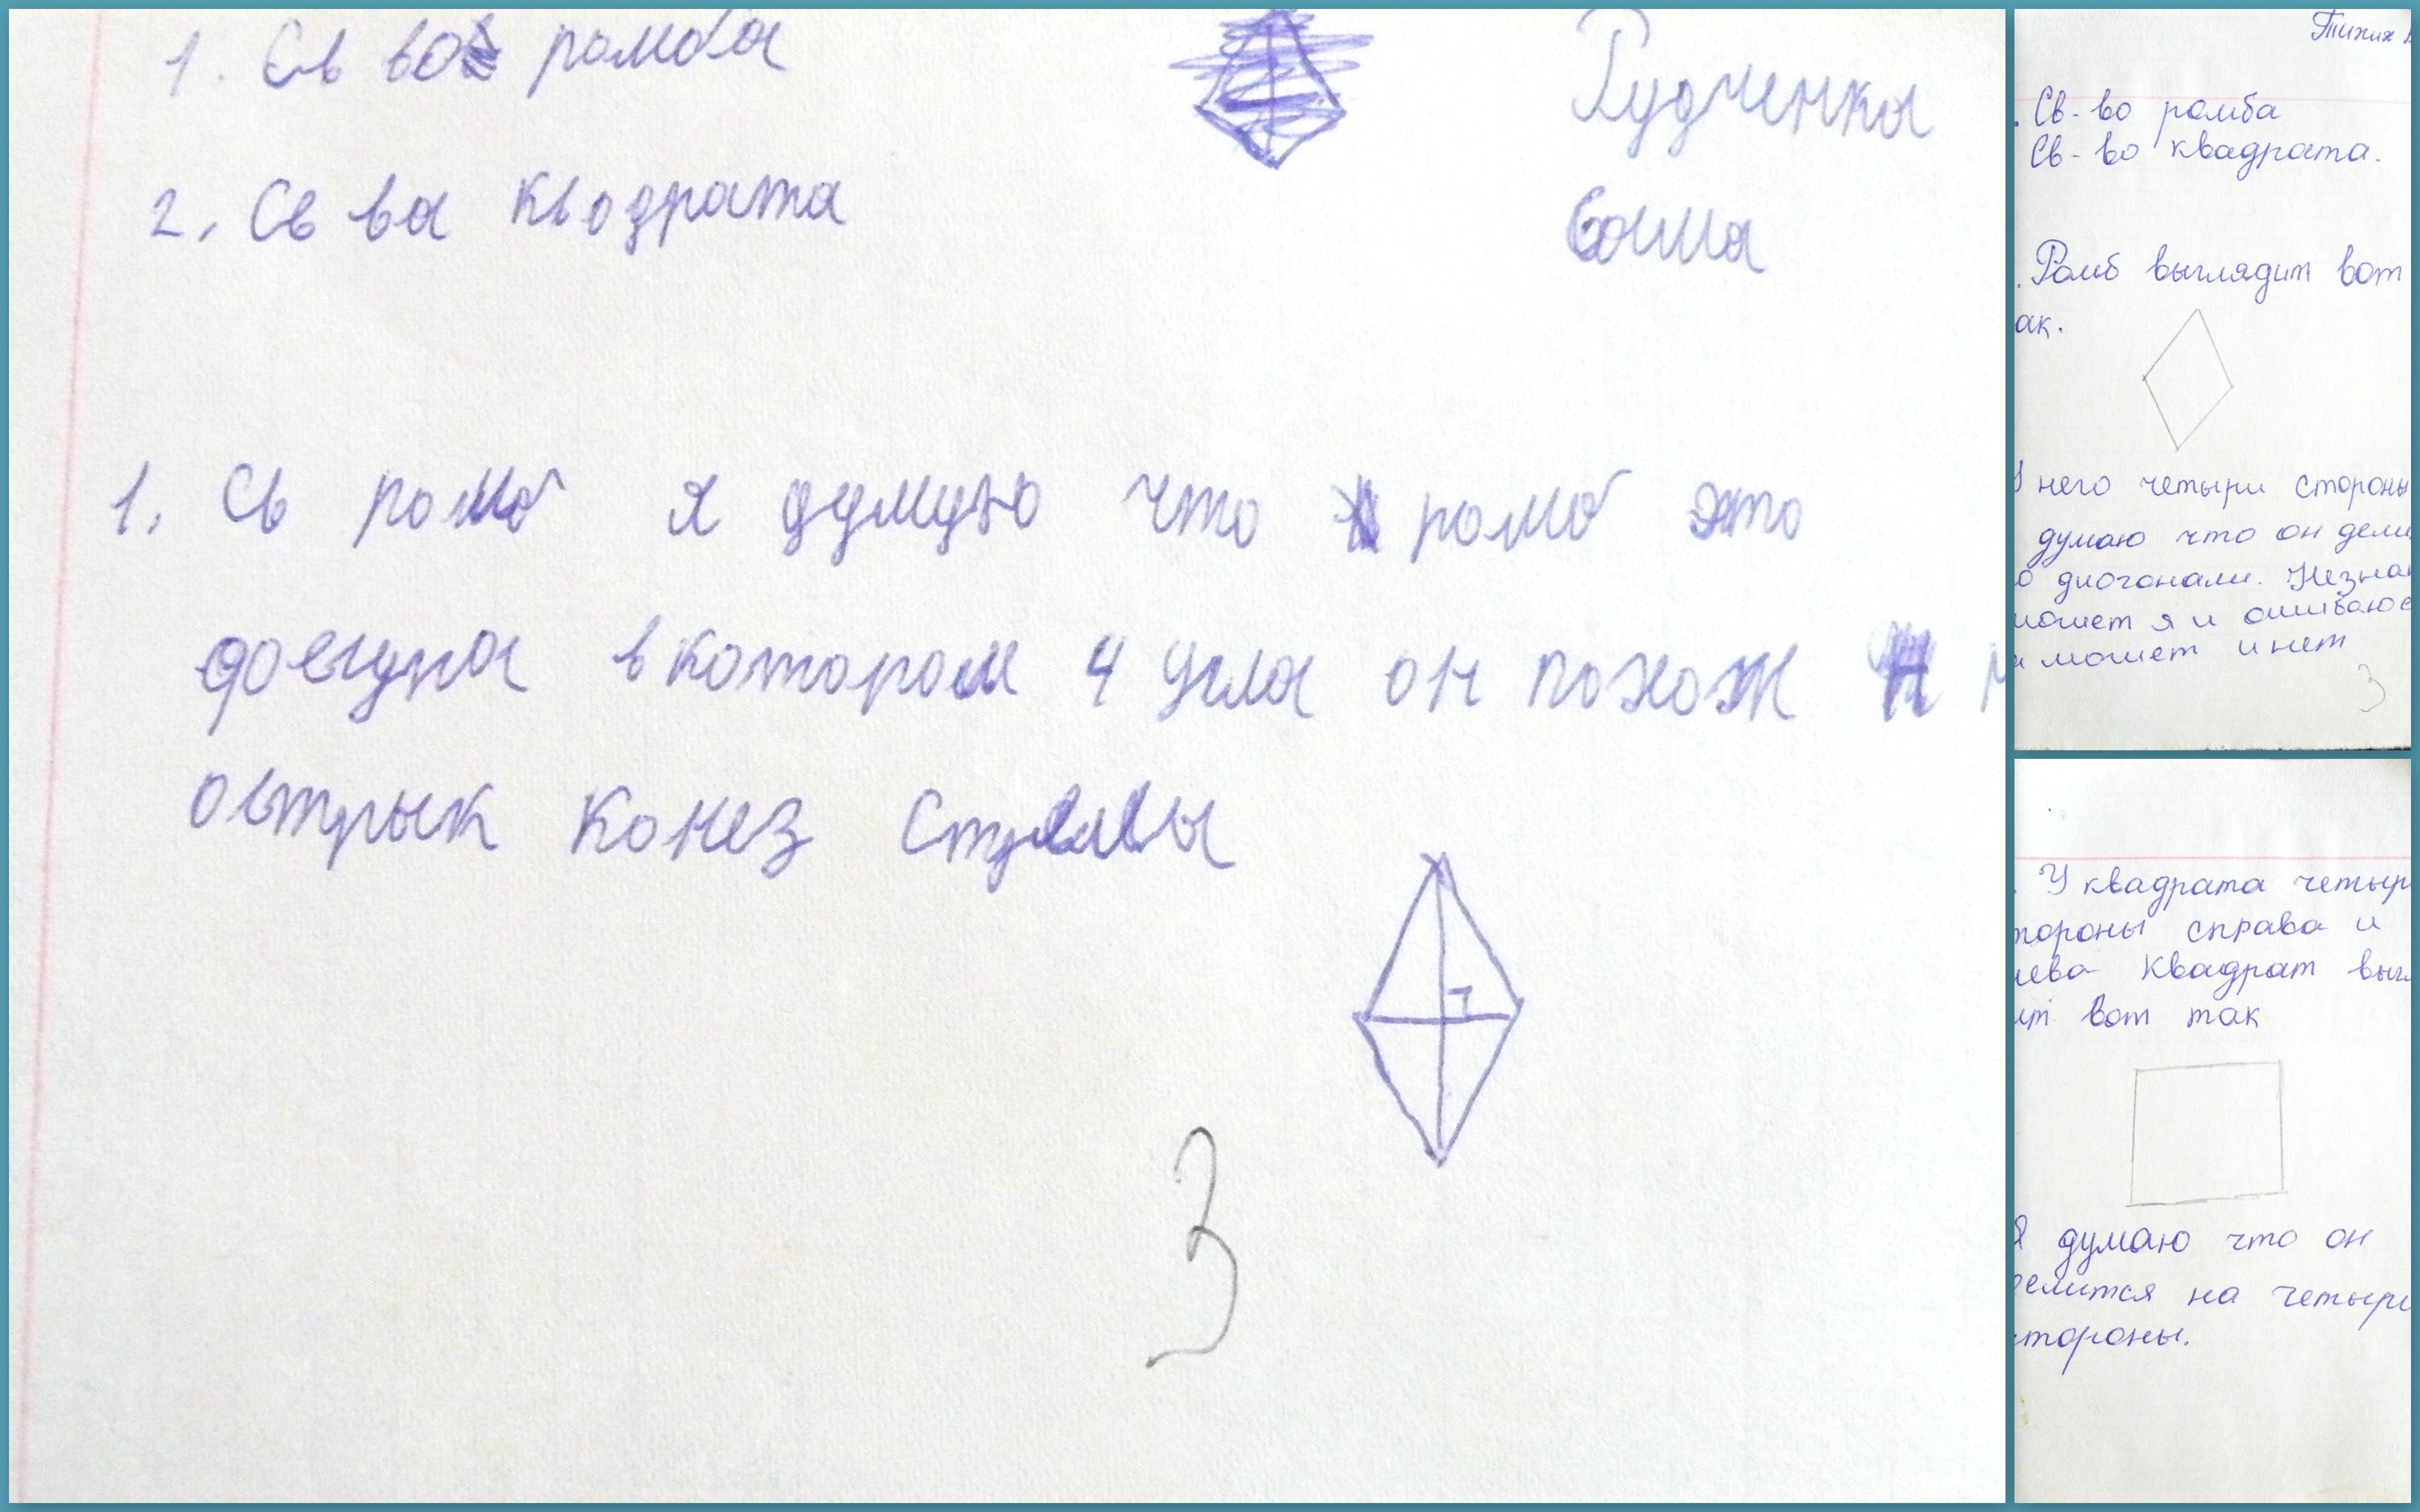 1. Св во ромба
Рудченка
2. Св ва кводрата
Саша
1. Св ромб я думую что ромб это
фоегура в котором 4 угла он похож н
острык конез стрелы
3
Тихих
. Св-во ромба
Св-во квадрата.
. Ромб выглядит вот
ак.
У него четыри стороны
думаю что он дели
о диогонали. Незнаю
может я и ошибаюс
а может и нет
3
. У квадрата четыр
тороны справа и
лева Квадрат выгл
ит вот так
Я думаю что он
делится на четыри
стороны.